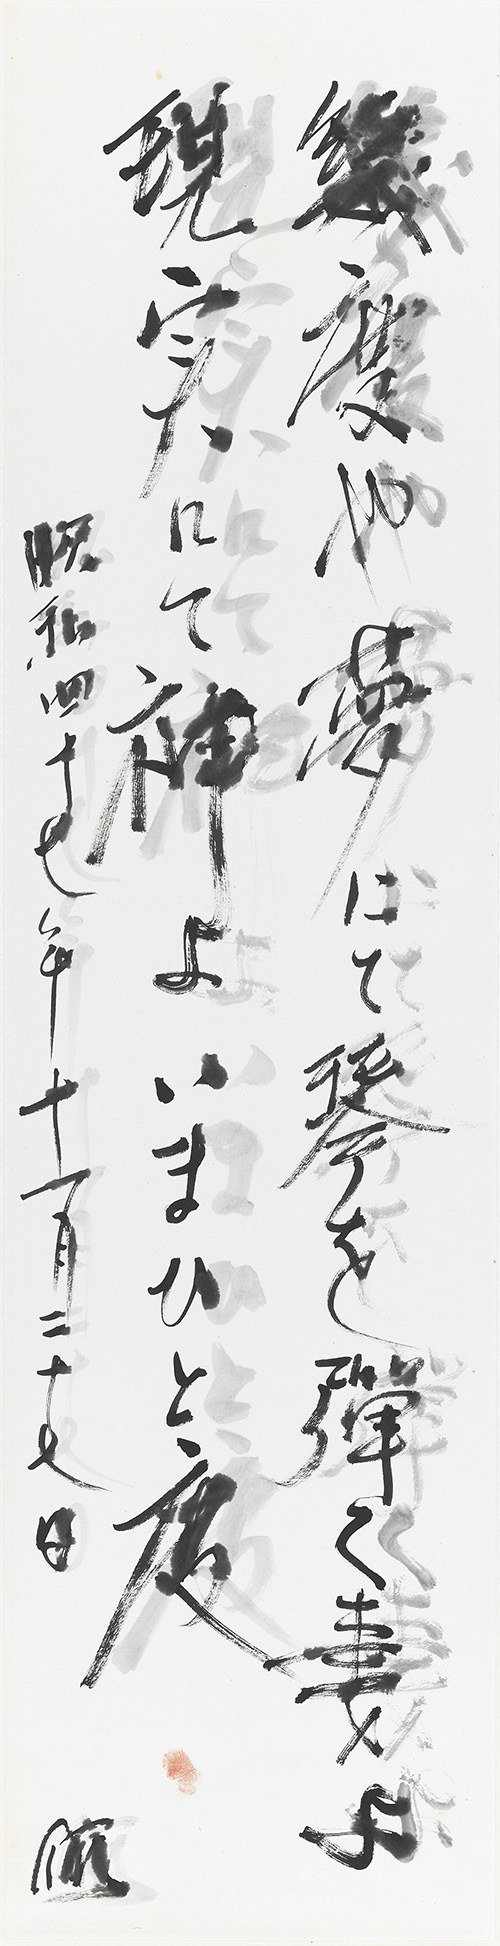 幾度や夢にて琴を弾く妻よ
現実にて神よいまひと度
昭和四十七年十一月二十七日